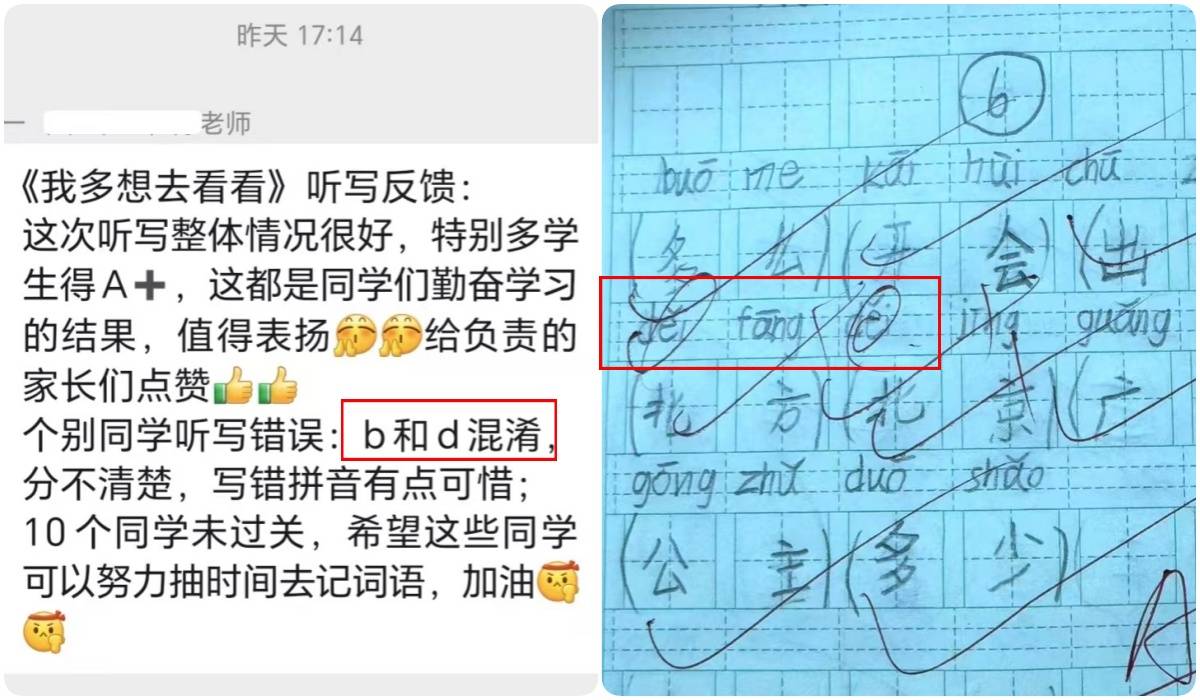 昨天 17:14
老师
《我多想去看看》听写反馈：
这次听写整体情况很好，特别多学
生得A➕，这都是同学们勤奋学习
的结果，值得表扬🤭🤭给负责的
家长们点赞👍👍
个别同学听写错误：b和d混淆，
分不清楚，写错拼音有点可惜；
10个同学未过关，希望这些同学
可以努力抽时间去记词语，加油
6
buō me kāi hùi chū
(多 么)(开 会)(出
děi fāng děi jīng guǎng
(北 方)(北 京)(广
gōng zhǔ duō shǎo
(公 主)(多 少)
A